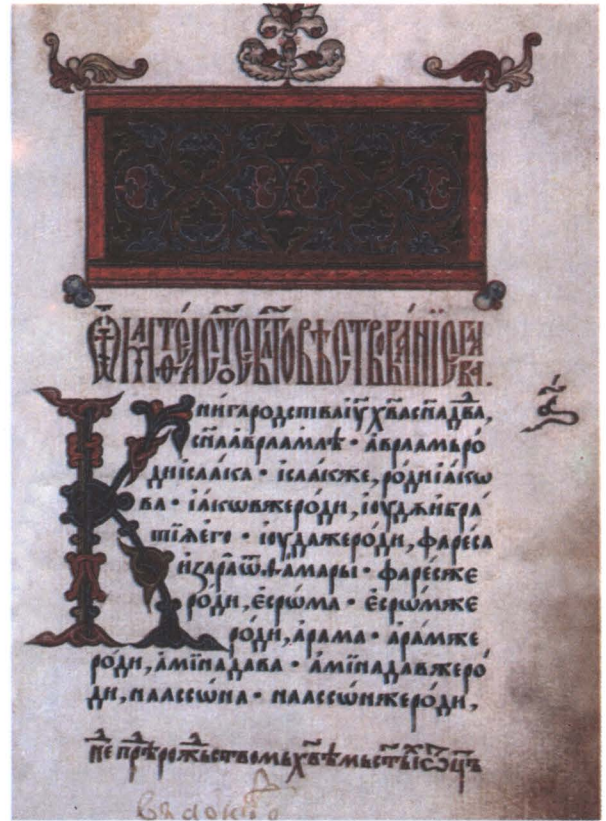 Ѿ маⷮѳеа ст҃ое бл҃говѣствованїе гл҃ава.
Книгародстваіу҃ хв҃асн҃адв҃да,
сн҃аавраамлѣ · авраамъро́
днїсаа́ка · ісаа́кже, ро́диїа́кѡ
ва · іа́кѡвжеро́ди, іоу́дѫибра́
тїѧего̀ · іоу́дажеро́ди, фаре́са
изараѿѳама́ры · фаре́сже
ро́ди, есрѡ́ма · есрѡ́мже
ро́ди, ара́ма · ара́мже
ро́ди, амїнада́ва · амїнада́вжеро́
ди, наассѡ́на · наассѡ́нжеро́ди,